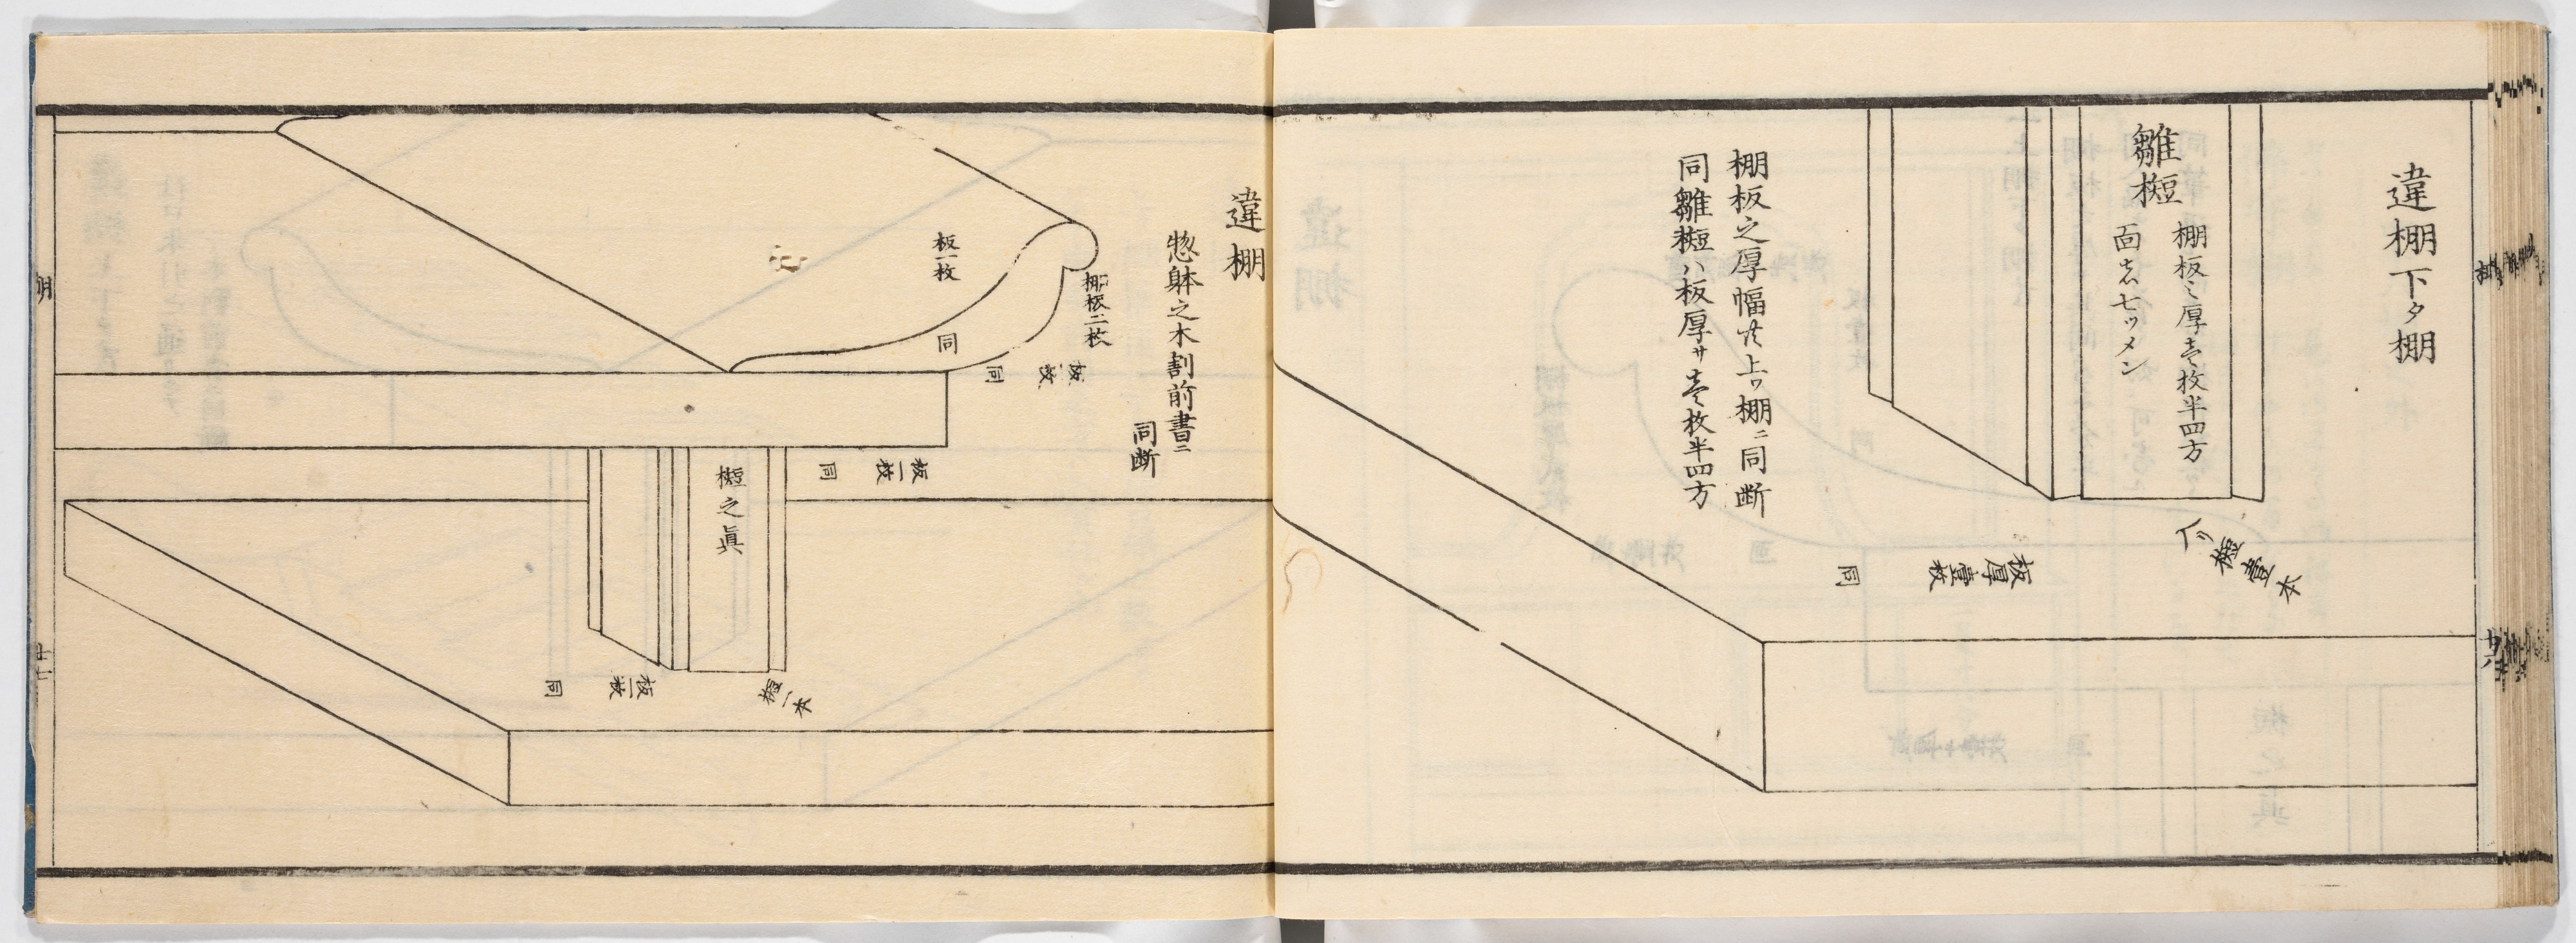 違棚下タ棚
雛𣖔
棚板之厚壱枚半四方
面ハ七ツメン
板厚壹枚
同
棚板之厚幅共上ハ棚ニ同断
同雛𣖔ハ板厚サ壱枚半四方
違棚
惣躰之木割前書ニ
同断
棚板二枚
板一枚
同
板一枚
同
板一枚
同
𣖔之眞
板一枚
同